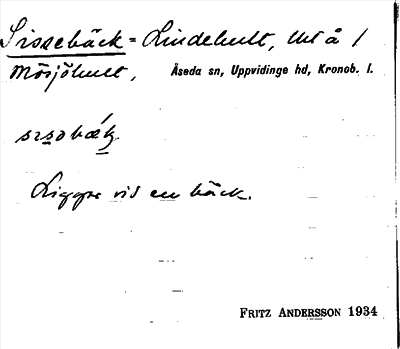 Sissebäck = Lindehult, Ut å /
Mösjöhult, Åseda sn, Uppvidinge hd, Kronob. l.
Ligger vid en bäck.
FRITZ ANDERSSON 1934